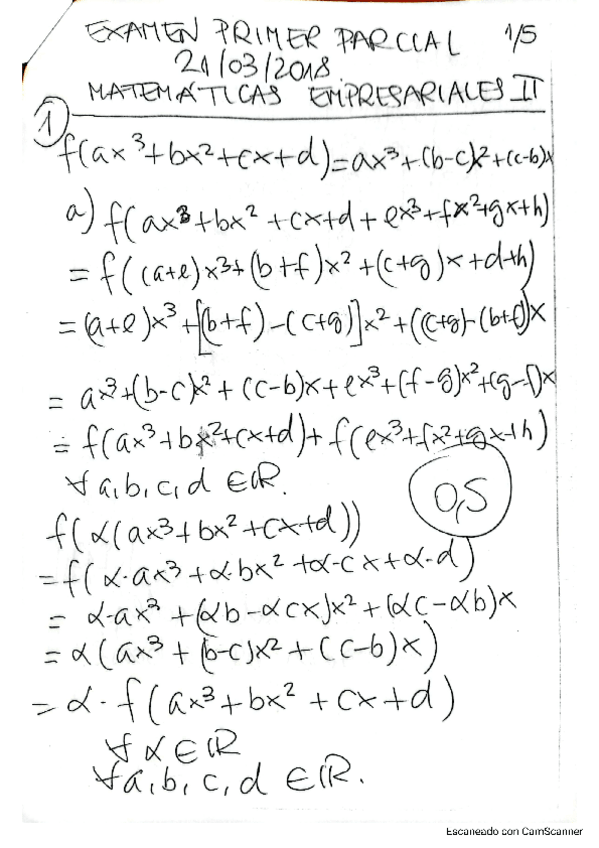 EXAMEN PRIMER PARCIAL 1/5
21/03/2018
MATEMÁTICAS EMPRESARIALES II
1
f(ax³+bx²+cx+d)=ax³+(b-c)x²+(c-b)x
a) f(ax³+bx²+cx+d+ex³+fx²+gx+h)
= f((a+e)x³+(b+f)x²+(c+g)x+d+h)
= (a+e)x³+[(b+f)-(c+g)]x²+((c+g)-(b+f))x
= ax³+(b-c)x²+(c-b)x+ex³+(f-g)x²+(g-f)x
= f(ax³+bx²+cx+d)+f(ex³+fx²+gx+h)
∀a,b,c,d ∈ℝ.
0,5
f(α(ax³+bx²+cx+d))
=f(α·ax³+α·bx²+α·cx+α·d)
= α·ax³+(αb-αcx)x²+(αc-αb)x
=α(ax³+(b-c)x²+(c-b)x)
= α·f(ax³+bx²+cx+d)
∀α∈ℝ
∀a,b,c,d ∈ℝ.
Escaneado con CamScanner